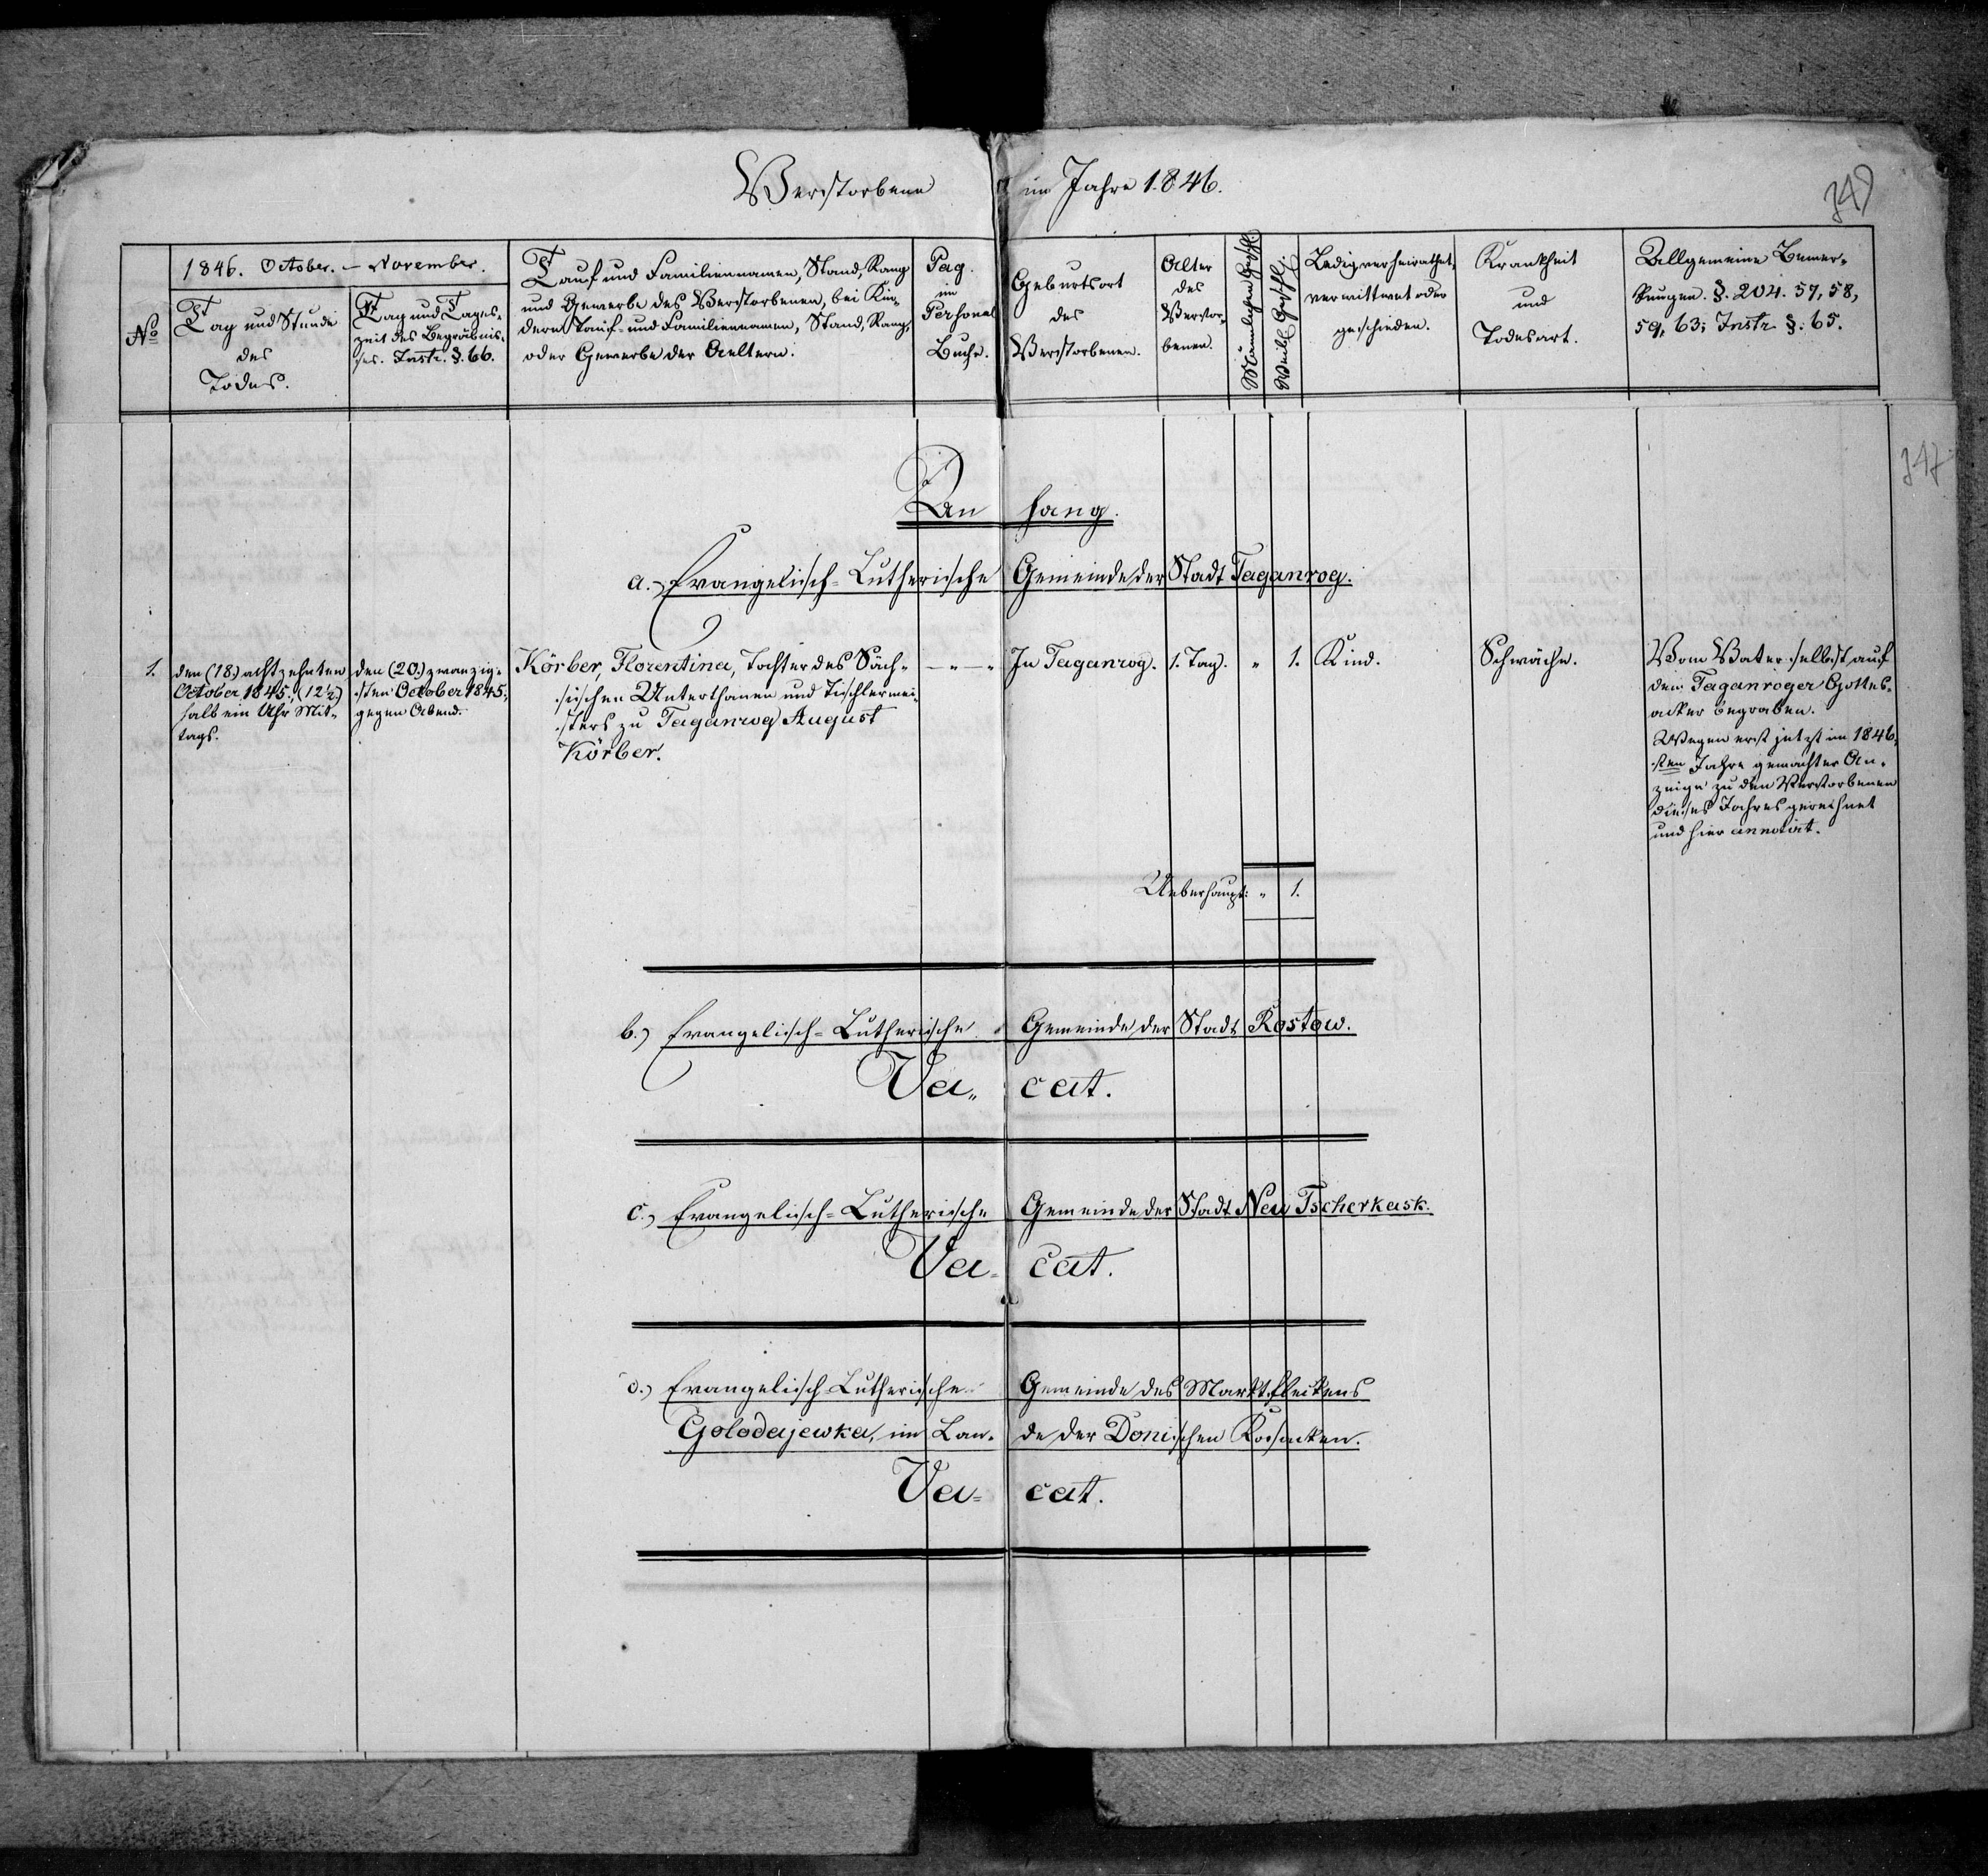 Verstorbene im Jahre 1846.
349
347
No
1846. October. – November.
Tag und Stunde
des
Todes.
Tag und Tages-
zeit des Begräbnis-
ses. Instr. §. 66.
Tauf und Familiennamen, Stand, Rang
und Gewerbe des Verstorbenen, bei Kin-
dern Tauf- und Familiennamen, Stand, Rang,
oder Gewerbe der Aeltern.
Pag.
im
Personal
Buche.
Geburtsort
des
Verstorbenen.
Alter
des
Verstor-
benen.
Männlichen Geschl.
Weibl. Geschl.
Ledig, verheirathet,
verwittwet oder
geschieden.
Krankheit
und
Todesart.
Allgemeine Bemer-
kungen. §. 204. 57, 58,
59, 63; Instr. §. 65.
Anhang.
a.) Evangelisch-Lutherische Gemeinde der Stadt Taganrog.
1.
den (18.) achtzehnten
October 1845; (12½)
halb ein Uhr Mit-
tags.
den (20.) zwanzig-
sten October 1845;
gegen Abend.
Körber, Florentina, Tochter des Säch-
sischen Unterthanen und Tischlermei-
sters zu Taganrog August
Körber.
– „ –
In Taganrog.
1. Tag.
„
1.
Kind.
Schwäche.
Vom Vater selbst auf
dem Taganroger Gottes-
acker begraben.
Wegen erst jetzt im 1846,
sten Jahre gemachter An-
zeige zu den Verstorbenen
dieses Jahres gerechnet
und hier annotirt.
Ueberhaupt: „ 1.
b.) Evangelisch-Lutherische Gemeinde der Stadt Rostow.
Va- cat.
c.) Evangelisch-Lutherische Gemeinde der Stadt Neu Tscherkask.
Va- cat.
d.) Evangelisch-Lutherische Gemeinde des Marktfleckens
Golodajewka, im Lan- de der Donischen Kosacken.
Va- cat.